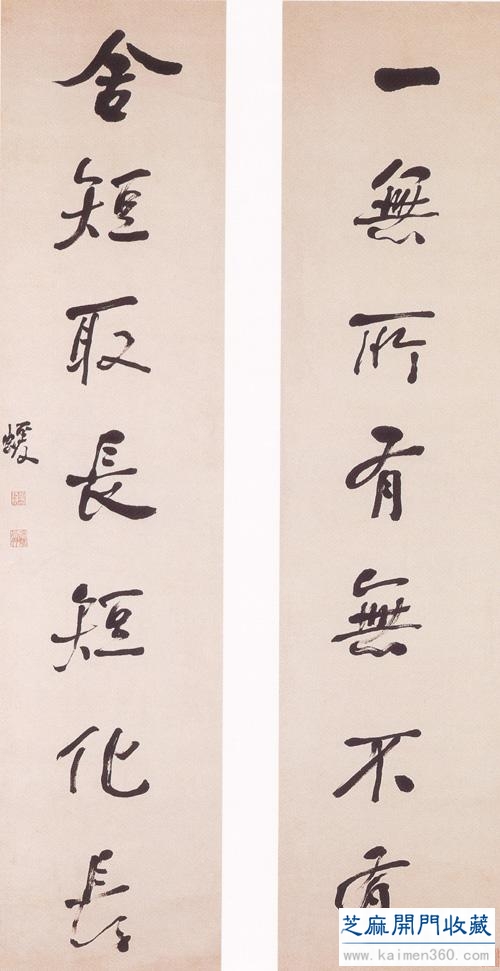 一無所有無不有
舍短取長短化長
蝯
芝麻開門收藏
www.kaimen360.com